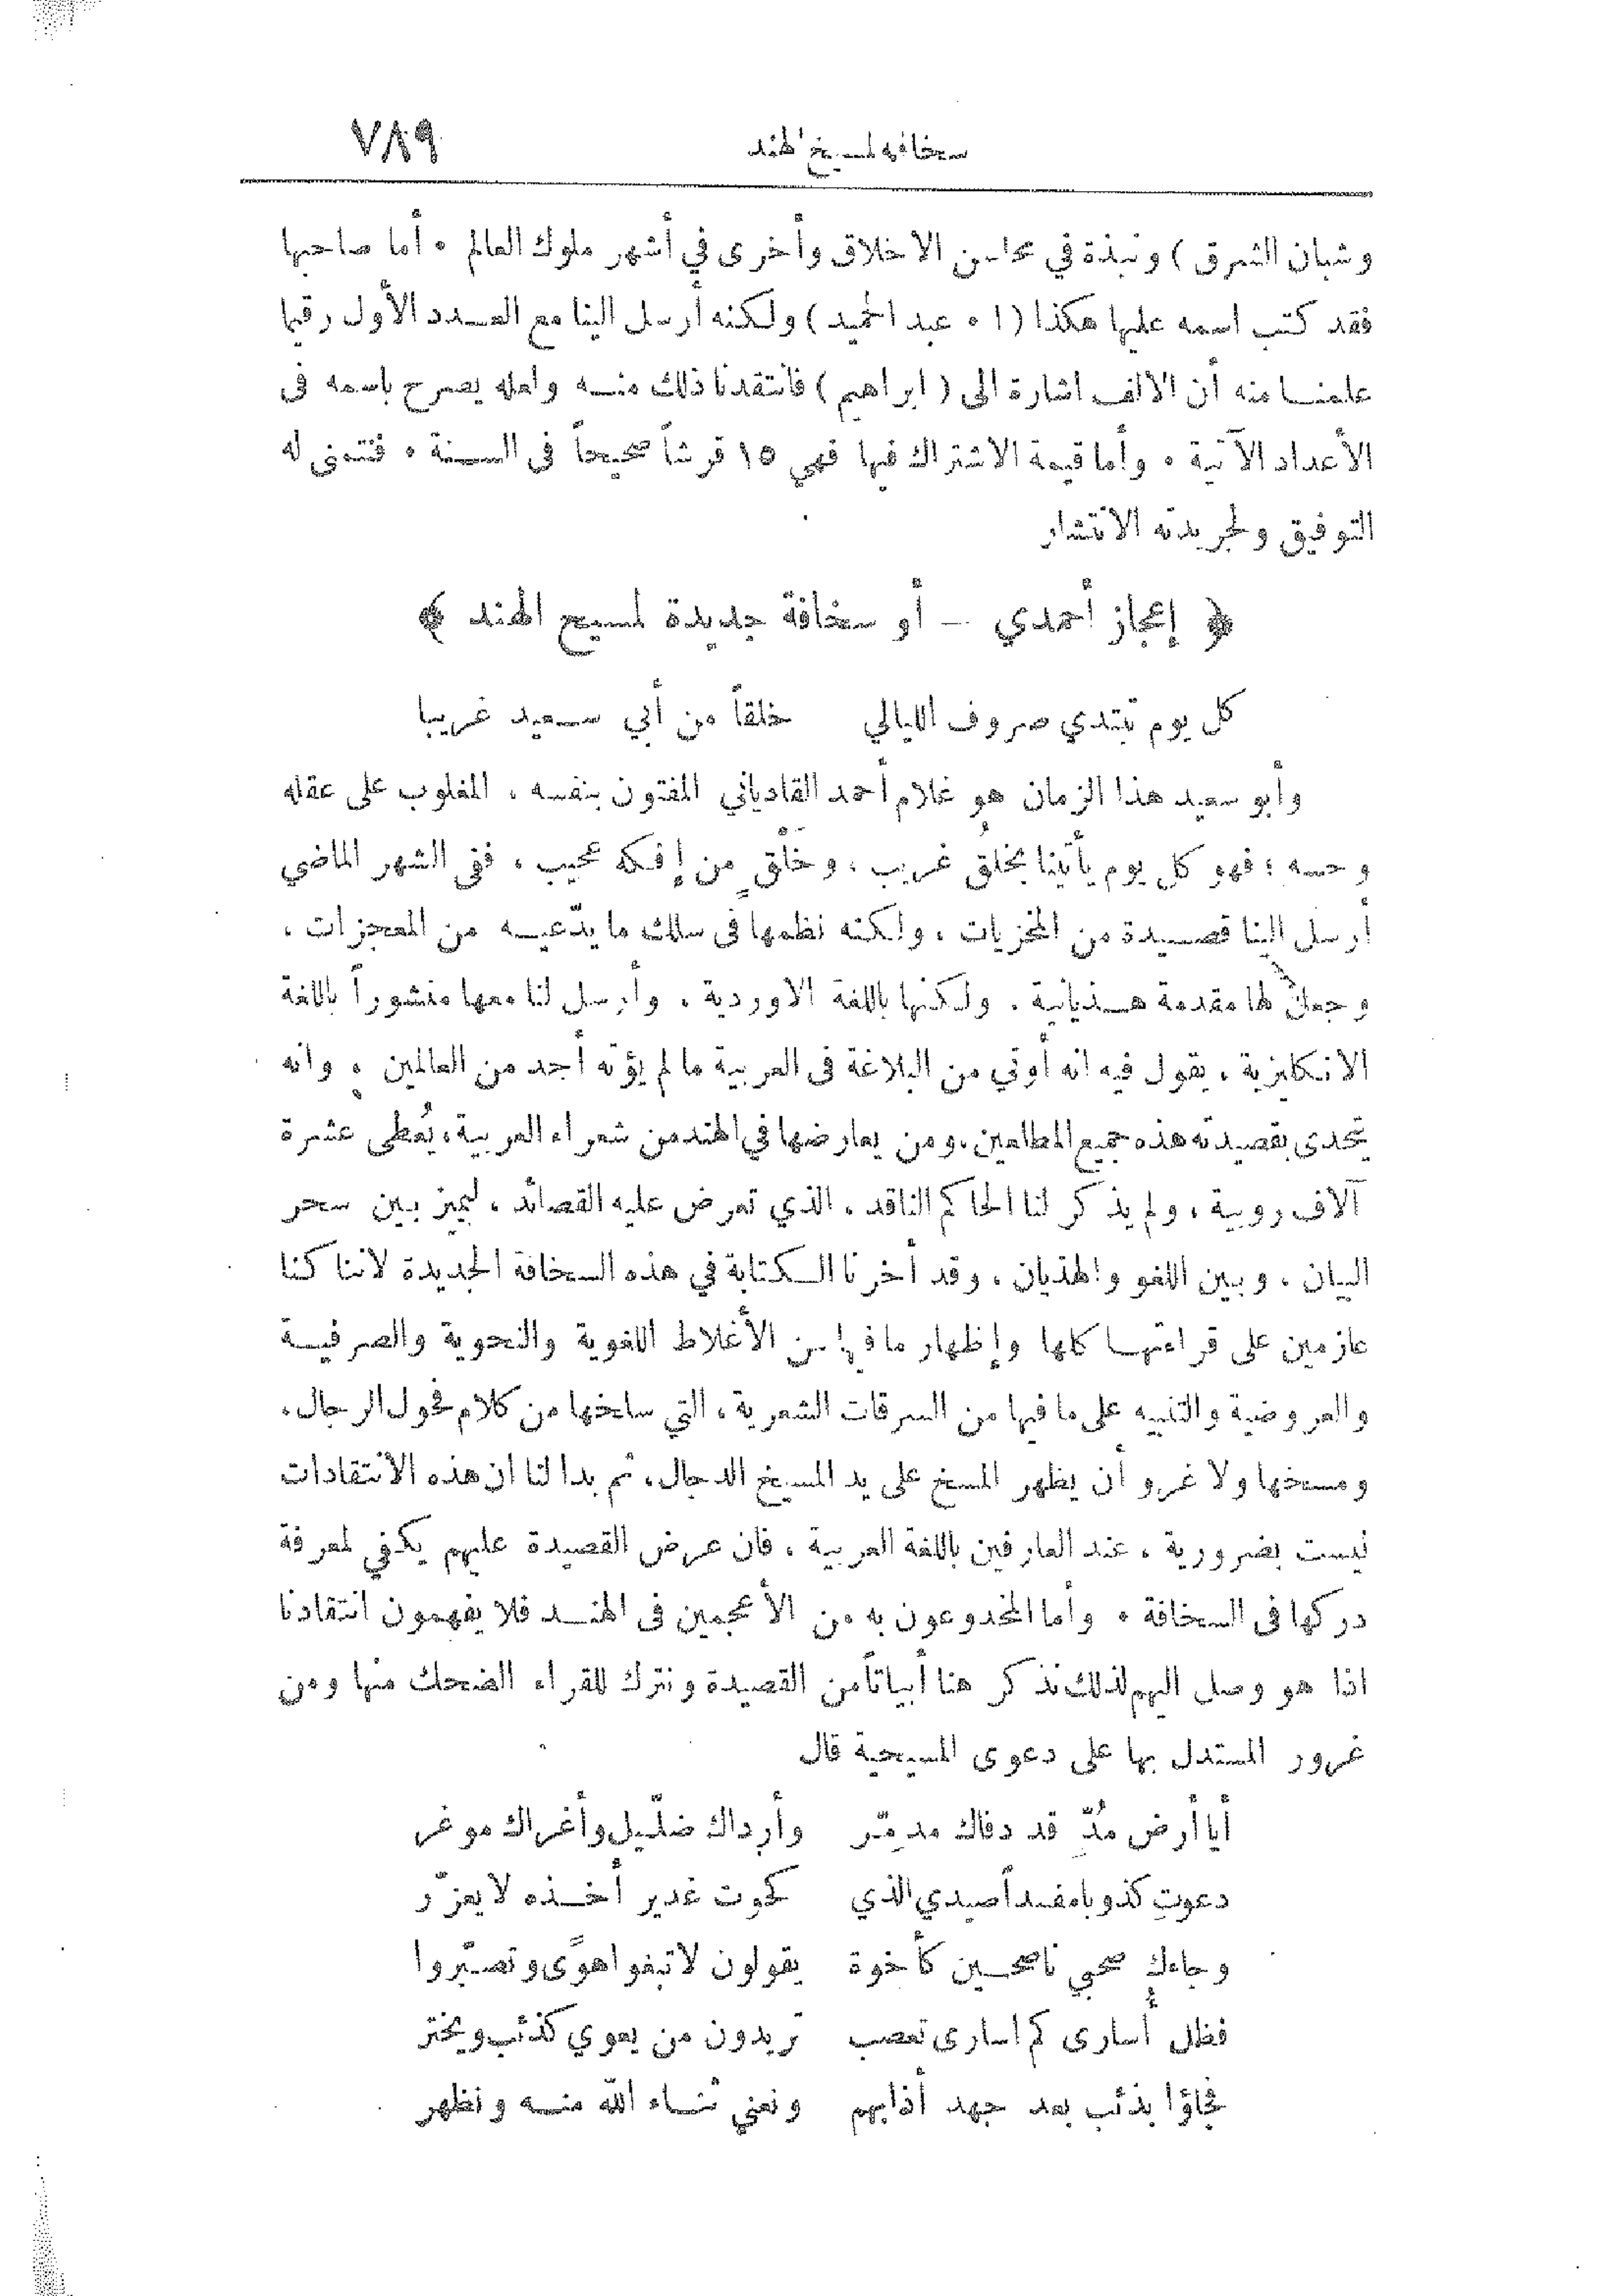 سخافة لمسيخ الهند ٧٨٩
وشبان الشرق ) ونبذة في محاسن الاخلاق وأخرى في أشهر ملوك العالم ٠ أما صاحبها
فقد كتب اسمه عليها هكذا ( ا ٠ عبد الحميد ) ولكنه أرسل الينا مع العدد الأول رقيما
علمنا منه أن الالف اشارة الى ( ابراهيم ) فانتقدنا ذلك منه ولعله يصرح باسمه فى
الأعداد الآتية ٠ وأما قيمة الاشتراك فيها فهي ١٥ قرشاً صحيحاً فى السنة ٠ فنتمنى له
التوفيق ولجريدته الانتشار
﴿ إعجاز أحمدي — أو سخافة جديدة لمسيح الهند ﴾
كل يوم تبتدي صروف الليالي خلقاً من أبي سعيد غريبا
وأبو سعيد هذا الزمان هو غلام أحمد القادياني المفتون بنفسه ، المغلوب على عقله
وحسه ؛ فهو كل يوم يأتينا بخُلُق غريب ، وخَلْقٍ من إفكه عجيب ، ففى الشهر الماضي
أرسل الينا قصيدة من المخزيات ، ولكنه نظمها فى سلك ما يدّعيه من المعجزات ،
وجعل لها مقدمة هذيانية . ولكنها باللغة الاوردية ، وأرسل لنا معها منشوراً باللغة
الانكليزية ، يقول فيه انه أوتي من البلاغة فى العربية ما لم يؤته أحد من العالمين ، وانه
يتحدى بقصيدته هذه جميع المطلعين ، ومن يعارضها في الهند من شعراء العربية ، يُعطى عشرة
آلاف روبية ، ولم يذكر لنا الحاكم الناقد ، الذي تعرض عليه القصائد ، ليميز بين سحر
البيان ، وبين اللغو والهذيان ، وقد أخرنا الكتابة في هذه السخافة الجديدة لاننا كنا
عازمين على قراءتها كلها وإظهار ما فيها من الأغلاط اللغوية والنحوية والصرفية
والعروضية والتنبيه على ما فيها من السرقات الشعرية ، التي سلخها من كلام فحول الرجال .
ومسخها ولا غرو أن يظهر المسخ على يد المسيخ الدجال ، ثم بدا لنا ان هذه الانتقادات
ليست بضرورية ، عند العارفين باللغة العربية ، فان عرض القصيدة عليهم يكفي لمعرفة
دركها فى السخافة ٠ وأما المخدوعون به من الأعجمين فى الهند فلا يفهمون انتقادنا
اذا هو وصل اليهم لذلك نذكر هنا أبياتاً من القصيدة ونترك للقراء الضحك منها ومن
غرور المستدل بها على دعوى المسيحية قال
أيا أرض مُدّ قد دفاك مدمّر وأرداك ضلّيل وأغراك موغر
دعوتِ كذوبا مفسداً صيدي الذي كحوت غدير أخذه لا يعزّر
وجاءك صحبي ناصحين كأخوة يقولون لا تبغوا هوًى وتصبّروا
فظل أُسارى كم اسارى تعصب تريدون من يعوي كذئب ويختر
فجاؤا بذئب بعد جهد أذابهم ونعني ثناء الله منه ونظهر